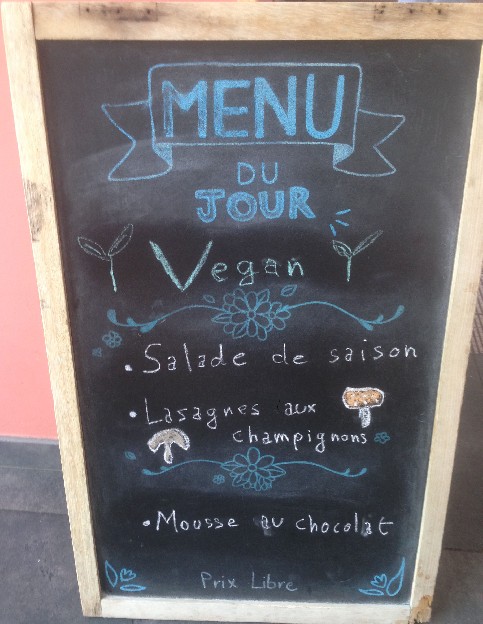 MENU
DU
JOUR
Vegan
• Salade de saison
• Lasagnes aux
champignons
• Mousse au chocolat
Prix Libre